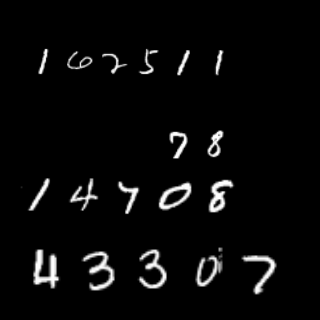 162511
78
14708
43307